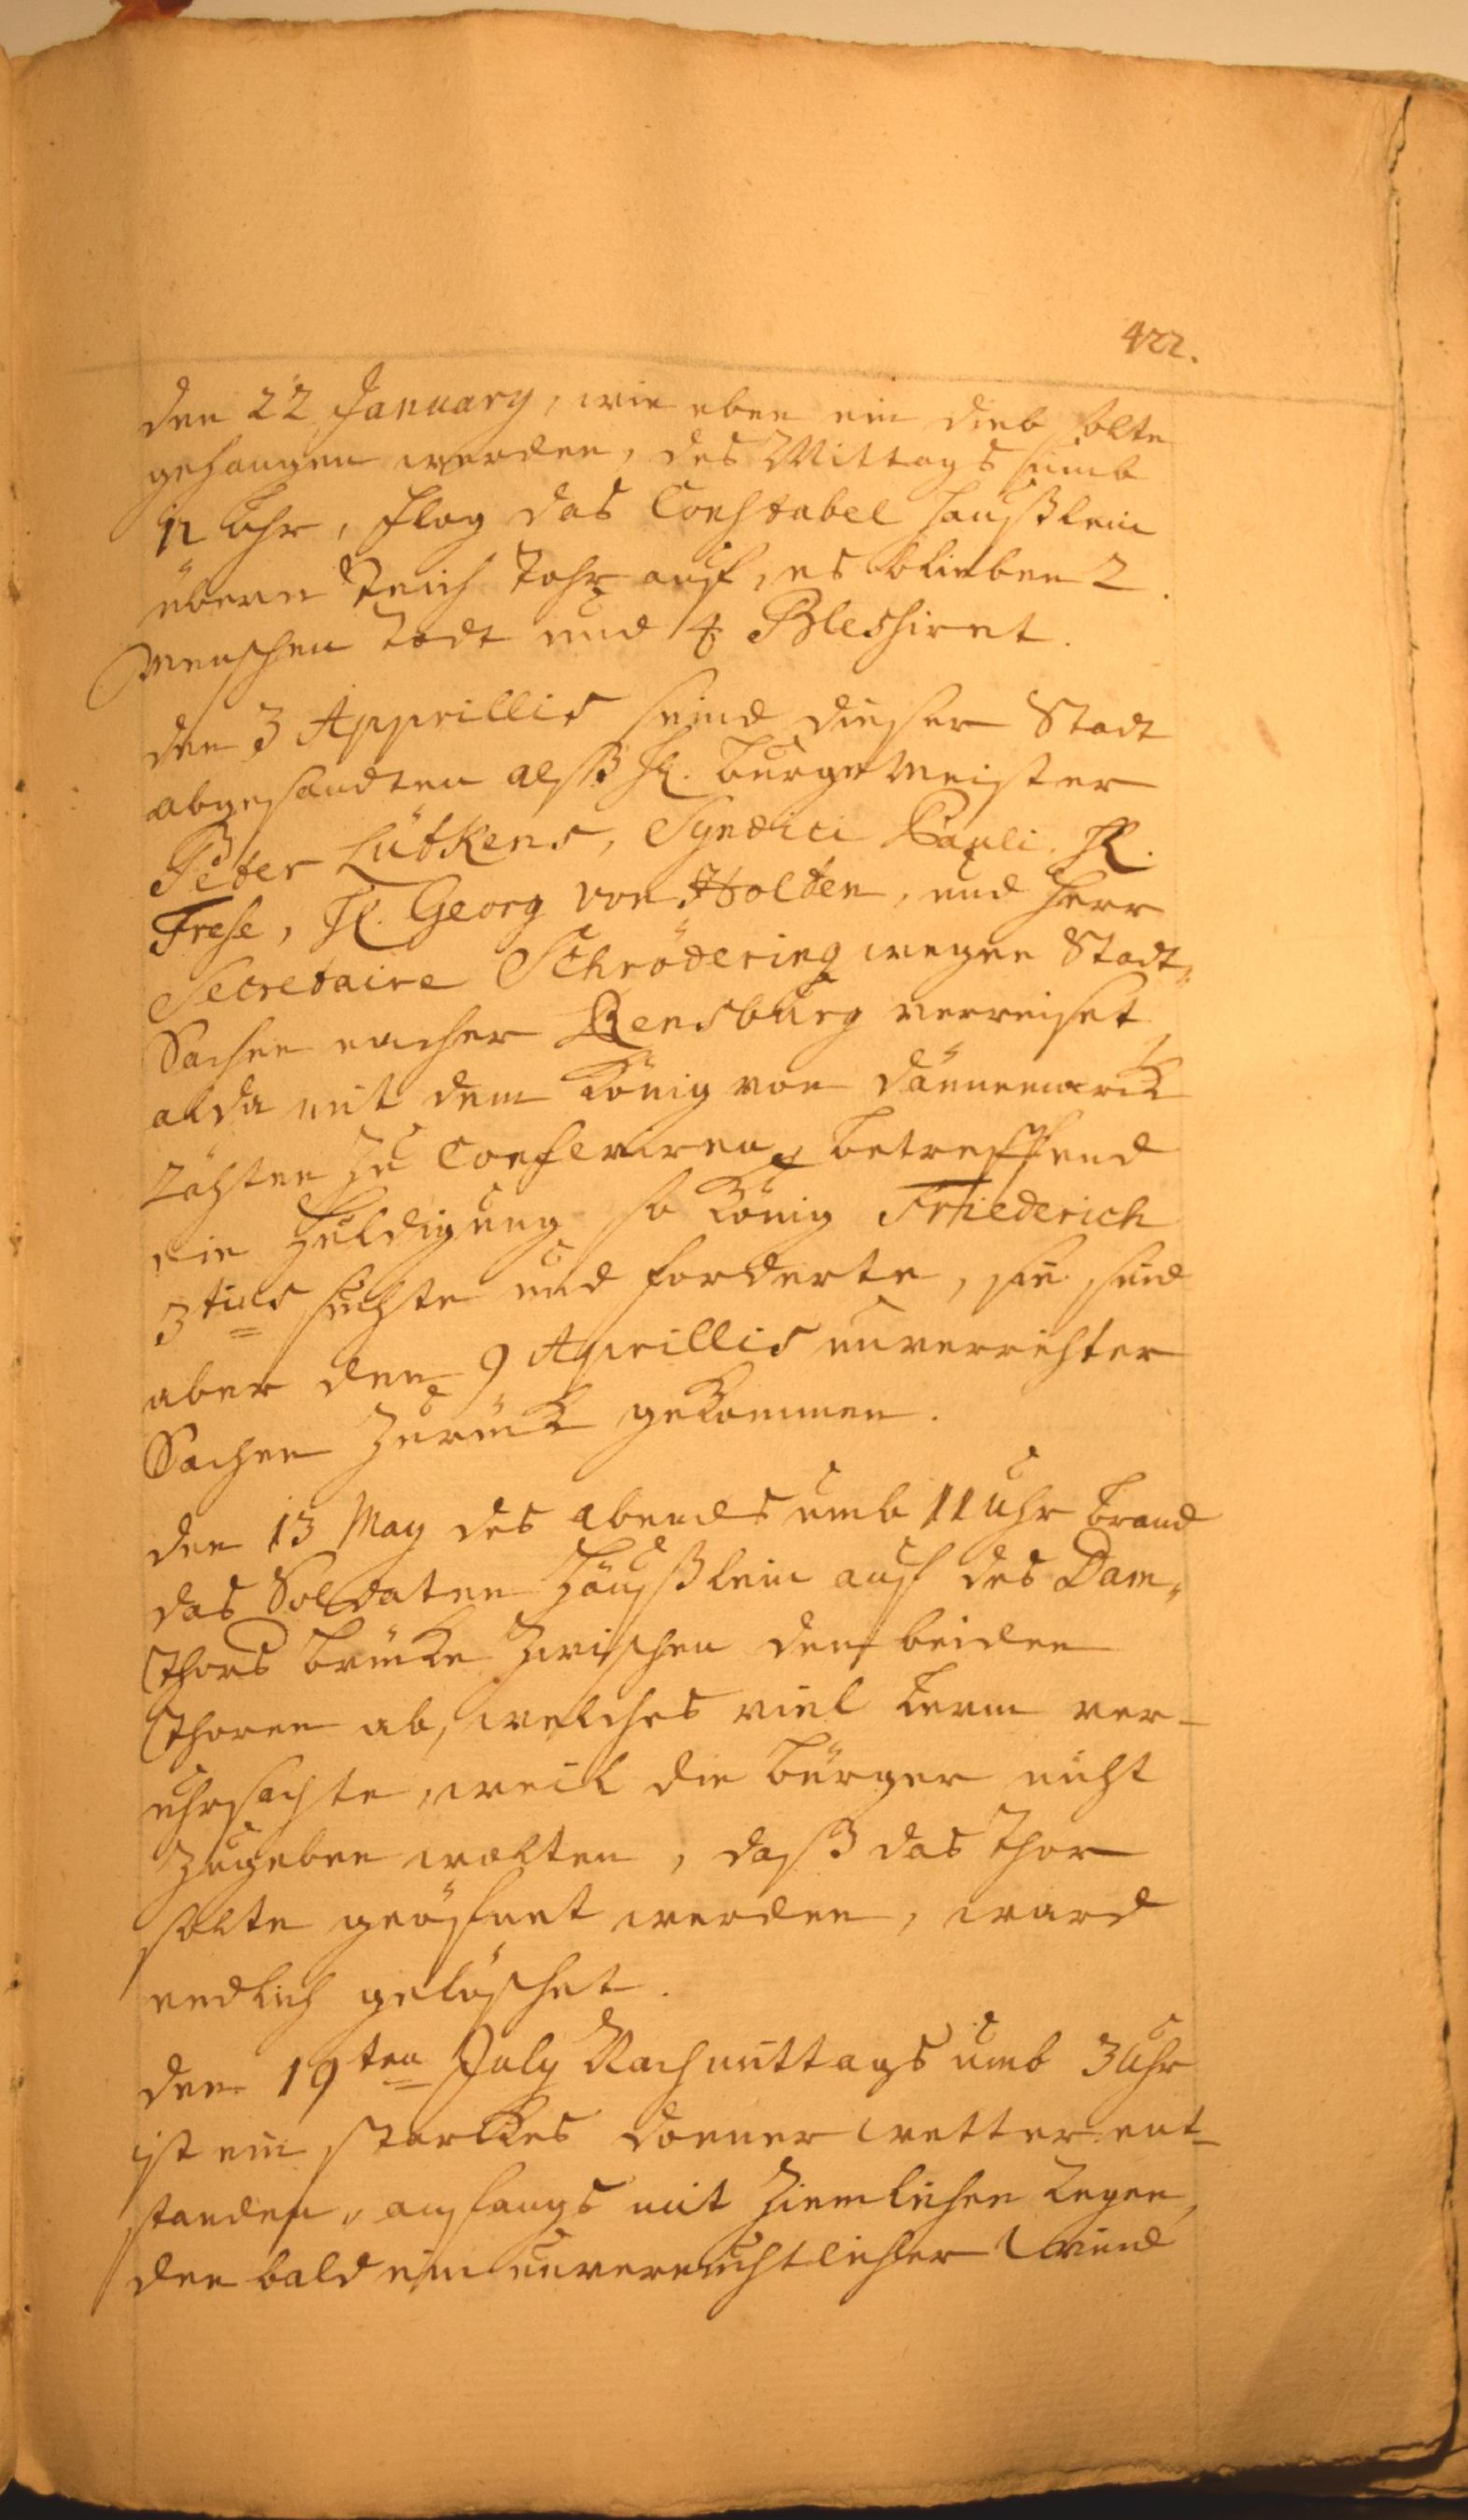 422.
den 22 January, wie eben ein dieb solte
gehangen werden, des Mittags umb
12 Uhr, flog das Constabel Haußlein
übern Teich Tohr auf, es blieben 2
Menschen todt und 4 Blessiret.
den 3 Apprillis seind dieser Stadt
abgesandten alß H. Burgemeister
Peter Lütkens, Syndici Pauli. H.
Frese, H. Georg von Holten, und Herr
Secretaire Schrödering wegen Stadt
Sachen nacher Rensburg verreiset
alda mit dem König von Dännemarck
Rähten zu Conferiren, betreffend
die Huldigung so König Friederich
3tius suchte und forderte, sie seind
aber den 9 Aprillis unverrichter
Sachen zurück gekommen.
den 13 May des abends umb 11 Uhr brand
das Soldaten Häußlein auf des Dam-
thors brücke zwischen den beiden
Thoren ab, welches viel Lerm ver-
uhrsachte, weil die bürger nicht
zugeben wolten, daß das Thor
solte geöfnet werden, ward
endlich gelöschet.
den 19ten July Nachmittags umb 3 Uhr
ist ein starckes donner wetter ent-
standen, anfangs mit ziemlichen Regen,
den bald ein unvermuhtlicher Wind